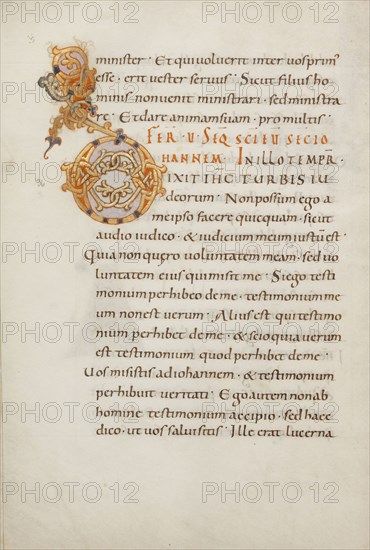 minister · Et qui voluerit inter vos prim'
esse · erit vester servus · Sicut filius ho
minis non venit ministrari · sed ministra
re · Et dare animam suam · pro multis ·
FER · V SEQ SC̄I EV̄ SEC̄ IO
HANNEM · IN ILLO TEMPR ·
DIXIT IHC TURBIS IU
deorum · Non possum ego a
meipso facere quicquam · sicut
audio iudico · & iudicium meum iustū est ·
Quia non quero voluntatem meam · sed vo
luntatem eius qui misit me · Si ego testi
monium perhibeo de me · testimonium me
um non est verum · Alius est qui testimo
nium perhibet de me · & scio quia verum
est testimonium quod perhibet de me ·
Vos misistis ad iohannem · & testimonium
perhibuit veritati · Ego autem non ab
homine testimonium accipio · sed haec
dico · ut vos salvi sitis · Ille erat lucerna
PHOTO 12